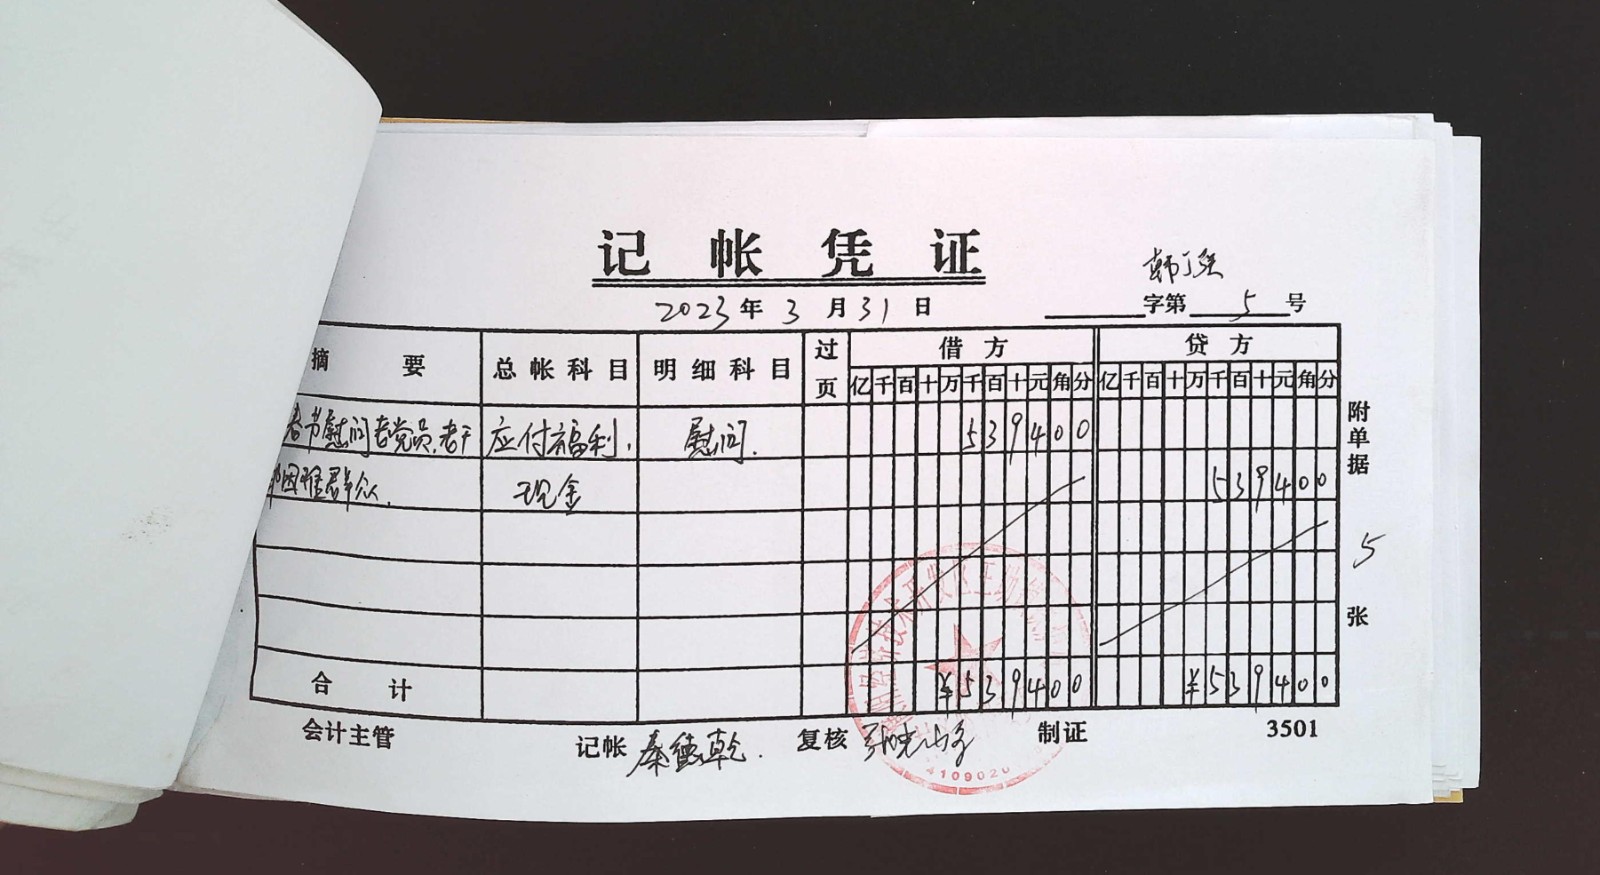 记帐凭证
2023年3月31日
字第 5 号
摘要 总帐科目 明细科目 过页 借方 贷方
亿千百十万千百十元角分 亿千百十万千百十元角分
春节慰问老党员、老干 应付福利. 慰问. 539400
困难群众. 现金 539400
合计 ¥539400 ¥539400
附单据 5 张
会计主管 记帐 秦德乾. 复核 制证 3501
4109020